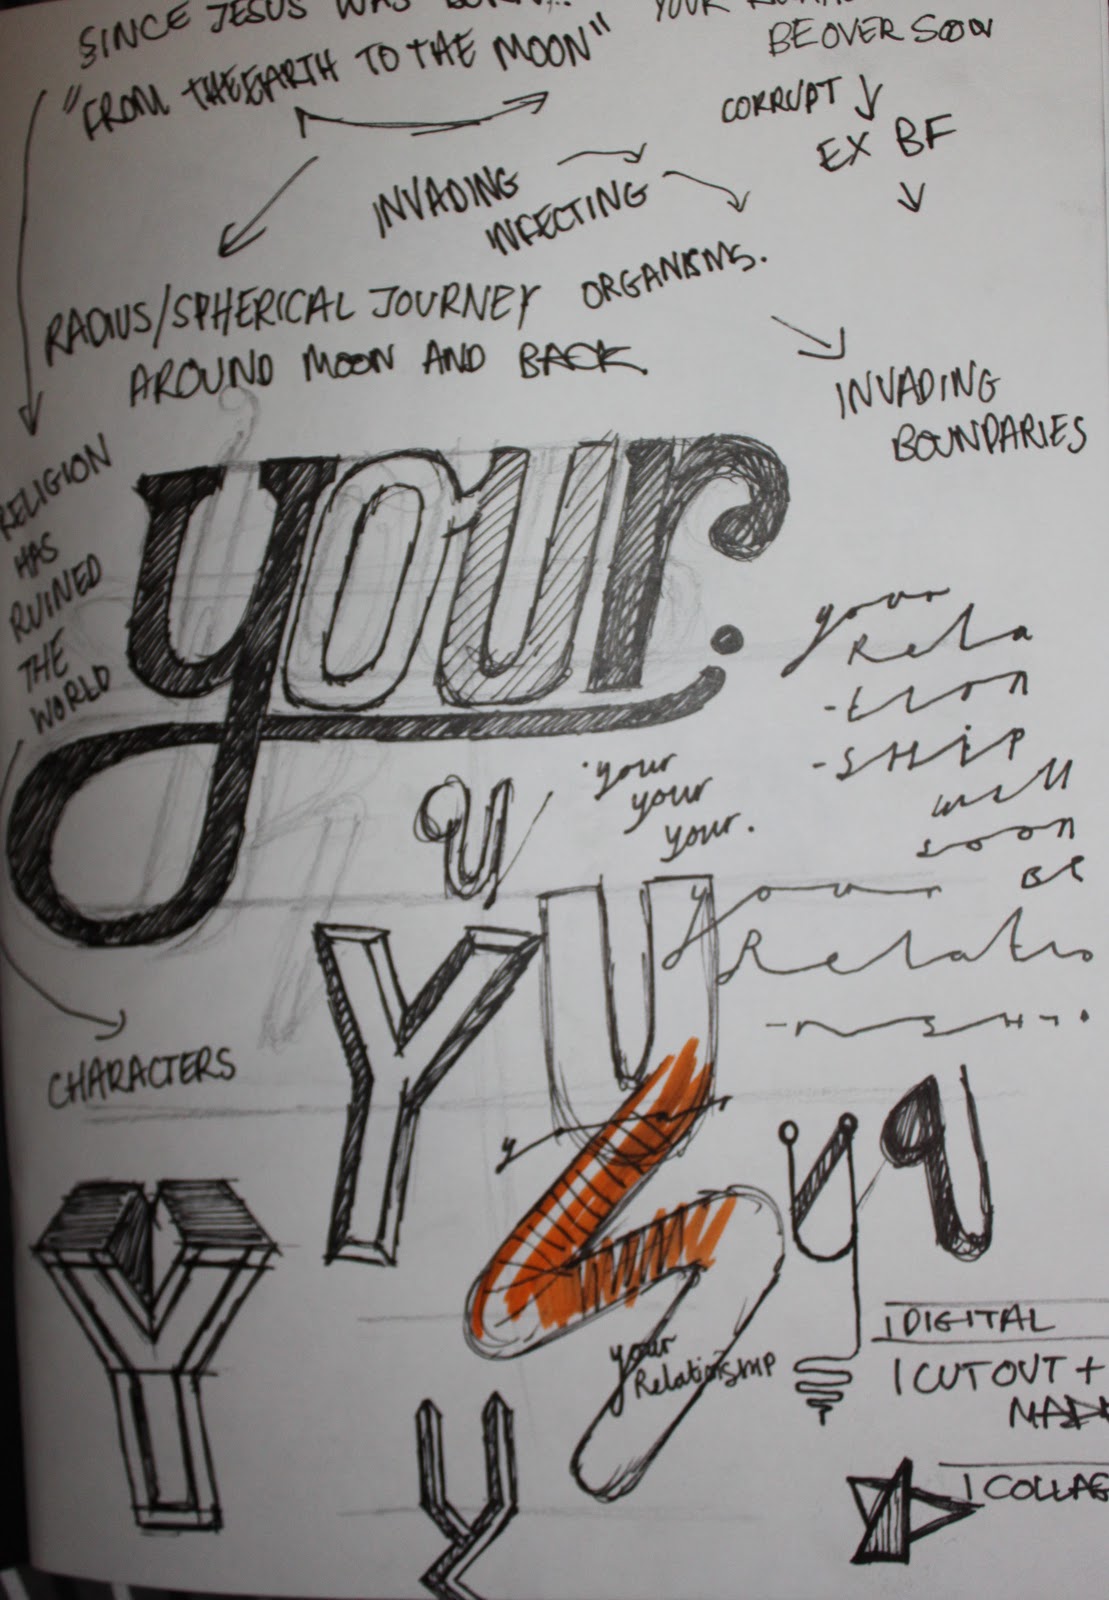 SINCE JESUS WAS
"FROM THE EARTH TO THE MOON"
YOUR
BE OVER SOON
CORRUPT
EX BF
INVADING
INFECTING
ORGANISMS.
RADIUS/SPHERICAL JOURNEY
AROUND MOON AND BACK.
INVADING
BOUNDARIES
RELIGION
HAS
RUINED
THE
WORLD
your.
your
Rela
-tion
-SHiP
will
soon
BE
u
your
your
your.
your
Relatio
-nSHi.
CHARACTERS
Y
U
y
y
u
Y
your
RelationSHIP
Y
1 DIGITAL
1 CUT OUT +
1 COLLAG